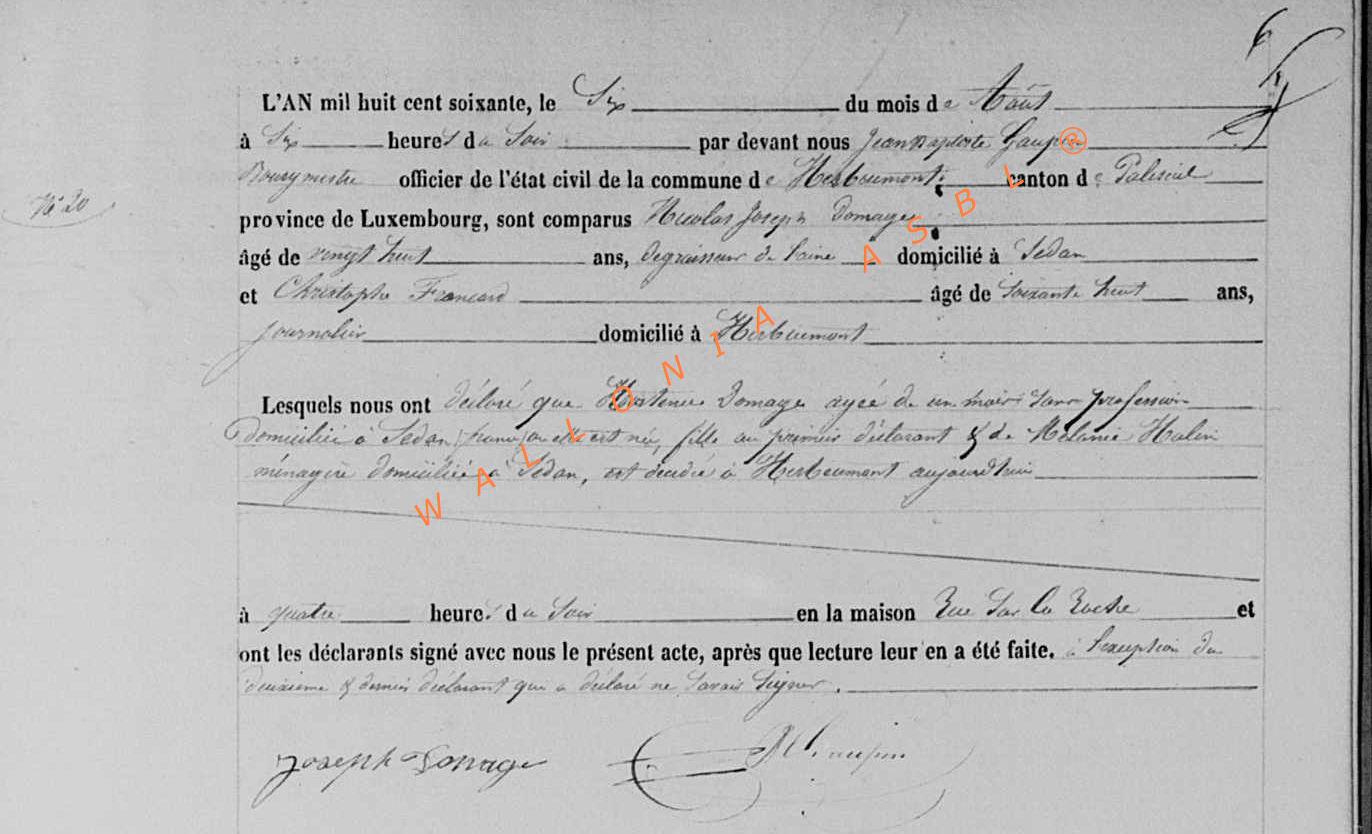 L'AN mil huit cent soixante, le Six du mois de Août
à Six heures du Soir par devant nous Jean Baptiste Gaupin
Bourgmestre officier de l'état civil de la commune de Herbeumont canton de Paliseul
N° 20
province de Luxembourg, sont comparus Nicolas Joseph Domage
âgé de vingt huit ans, degraisseur de laine domicilié à Sedan
et Christophe Francard âgé de Soixante huit ans,
journalier domicilié à Herbeumont
Lesquels nous ont déclaré que Hortence Domage agée de un mois sans profession
domiciliée à Sedan (france) ou elle est née, fille au premier déclarant & de Mélanie Halin
ménagère domiciliée à Sedan, est décédée à Herbeumont aujourd'hui
à quatre heures du Soir en la maison Rue Sur la Roche et
ont les déclarants signé avec nous le présent acte, après que lecture leur en a été faite. à l'exception du
deuxième & dernier déclarant qui a déclaré ne Savoir Signer.
Joseph Domage
WALLONIA ASBL ®